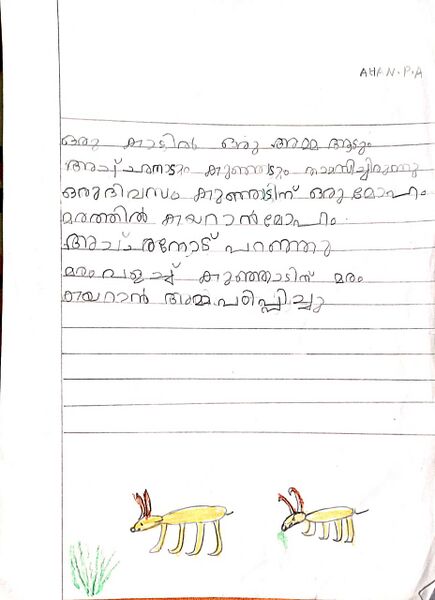 AHAN.P.A
ഒരു കാട്ടിൽ ഒരു അമ്മ ആടും
അച്ഛനാടും കുഞ്ഞാടും താമസിച്ചിരുന്നു
ഒരുദിവസം കുഞ്ഞാടിന് ഒരു മോഹം
മരത്തിൽ കയറാൻ മോഹം
അച്ഛനോട് പറഞ്ഞു
മരം വളച്ച് കുഞ്ഞാടിന് മരം
കയറാൻ അമ്മ പഠിപ്പിച്ചു